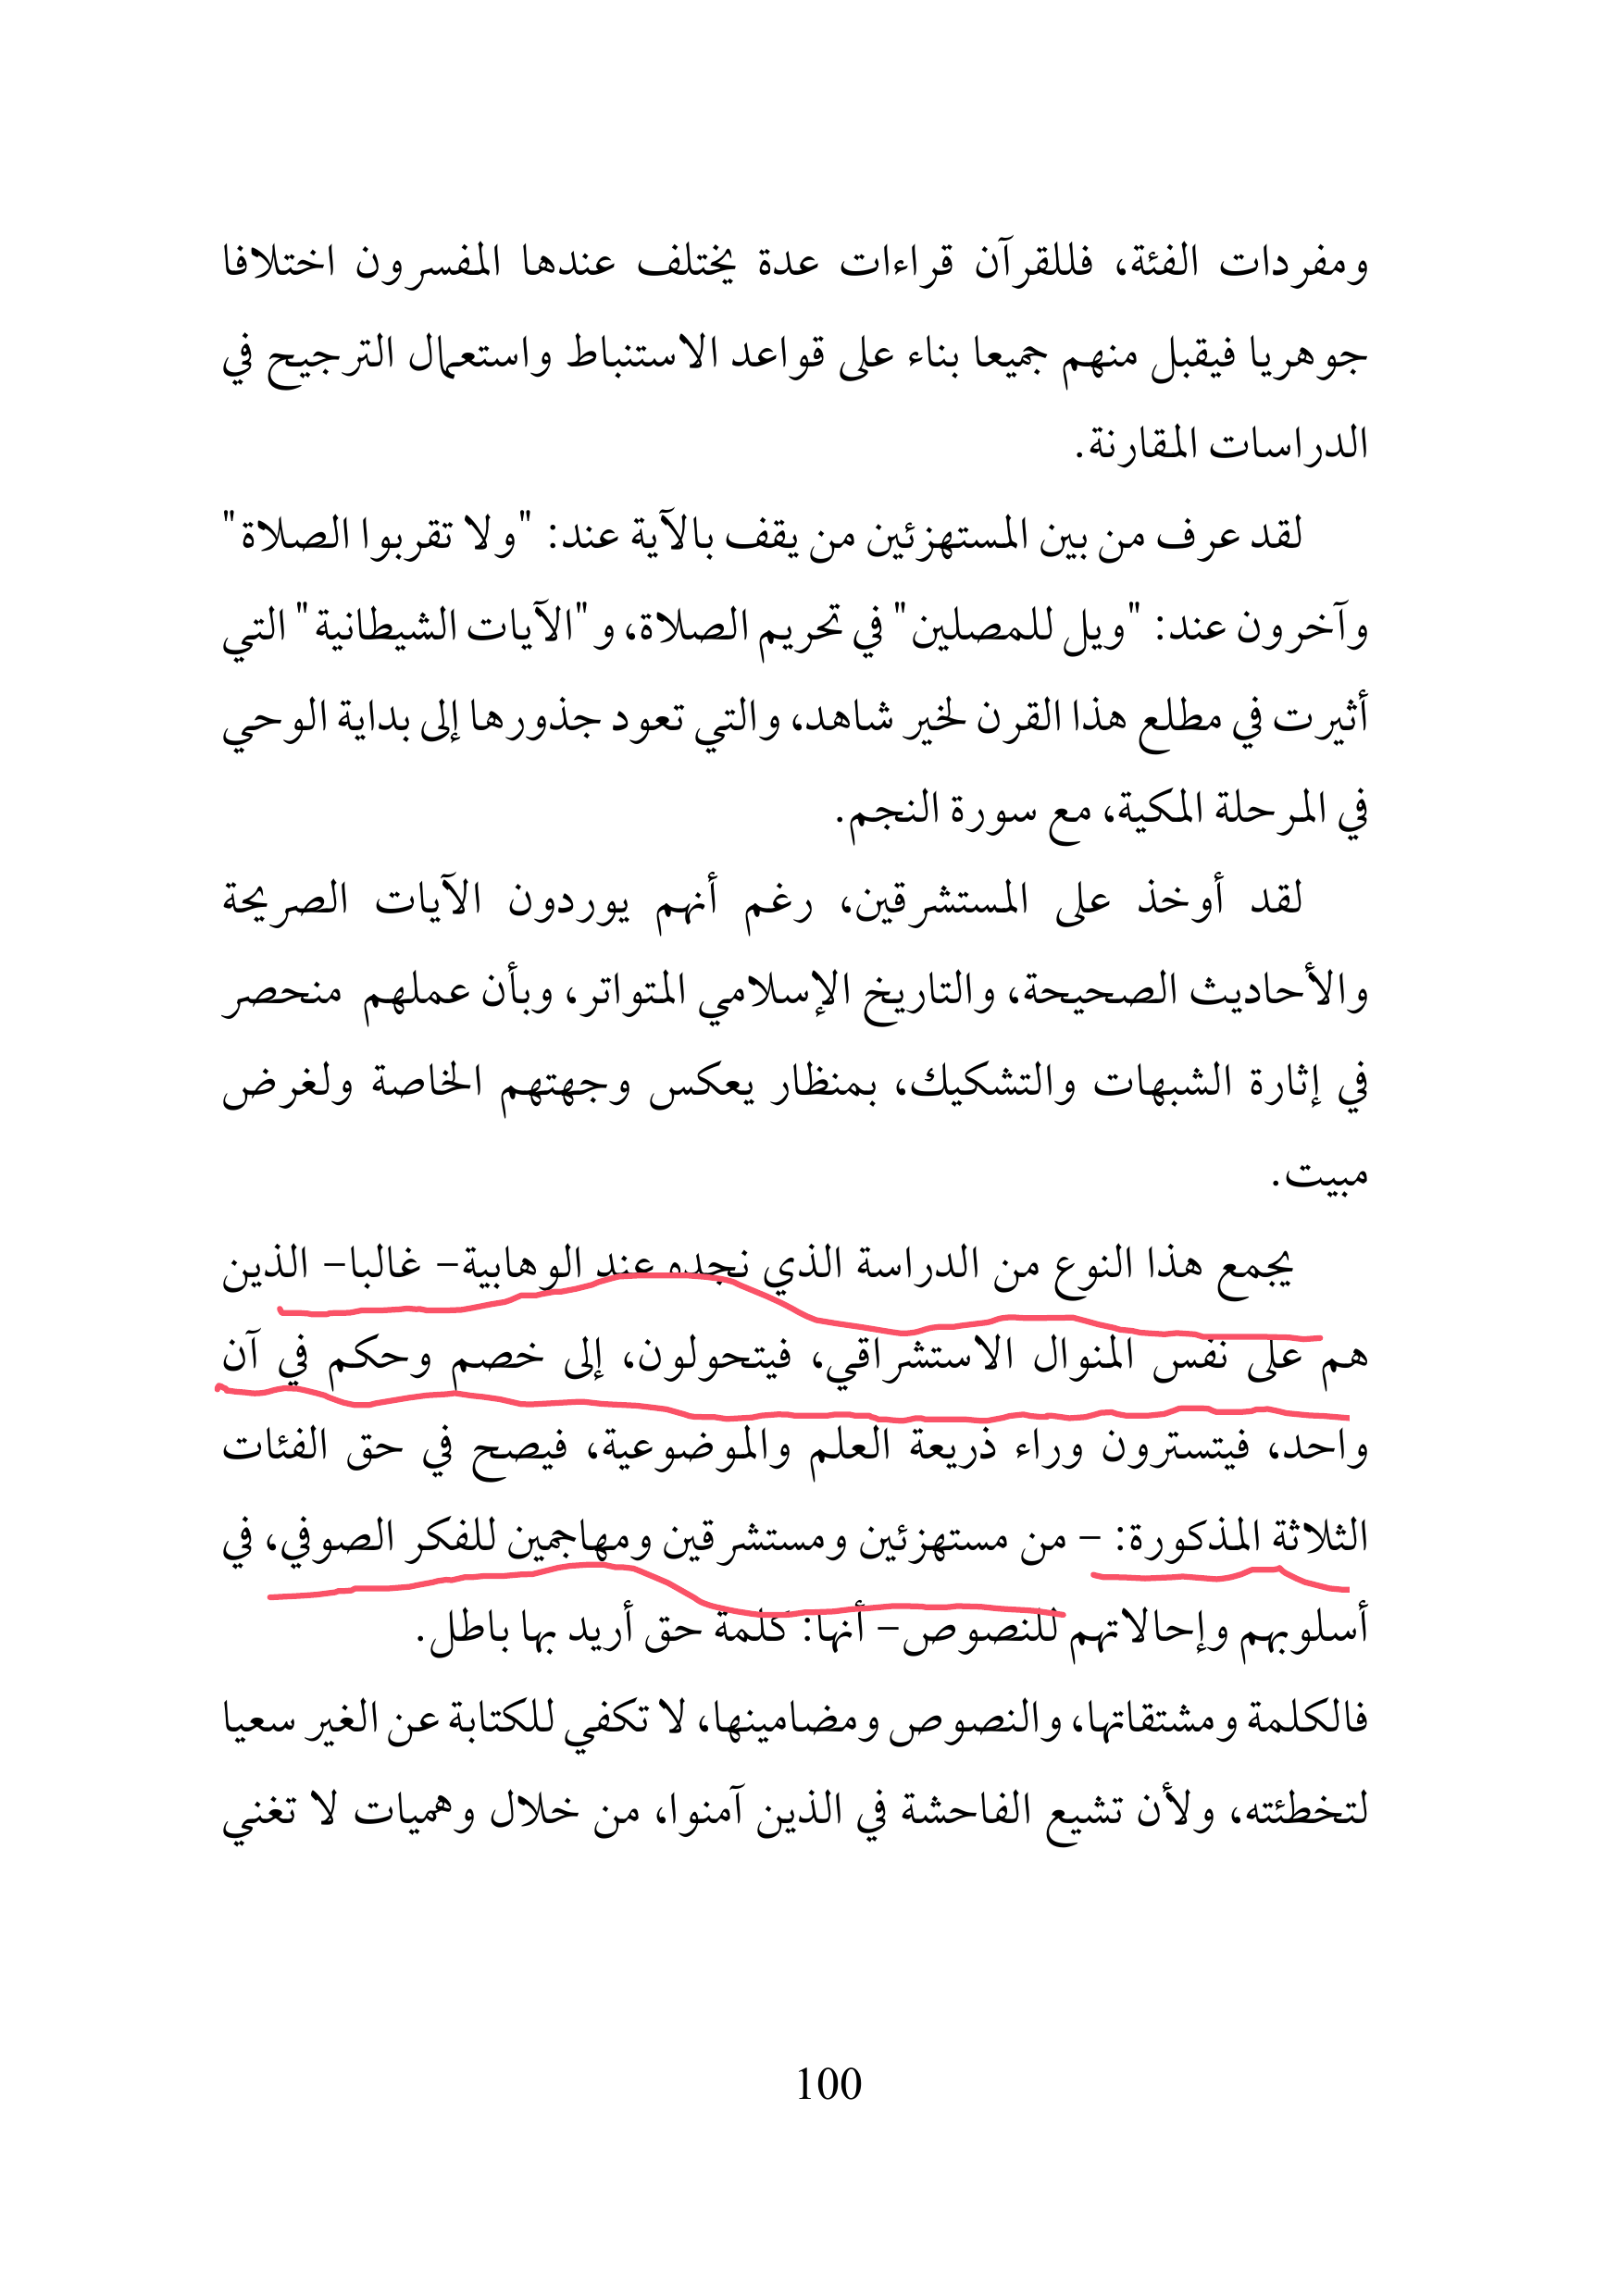 ومفردات الفئة، فللقرآن قراءات عدة يختلف عندها المفسرون اختلافا
جوهريا فيقبل منهم جميعا بناء على قواعد الاستنباط واستعمال الترجيح في
الدراسات المقارنة.
لقد عرف من بين المستهزئين من يقف بالآية عند: "ولا تقربوا الصلاة"
وآخرون عند: "ويل للمصلين" في تحريم الصلاة، و"الآيات الشيطانية" التي
أثيرت في مطلع هذا القرن لخير شاهد، والتي تعود جذورها إلى بداية الوحي
في المرحلة المكية، مع سورة النجم.
لقد أوخذ على المستشرقين، رغم أنهم يوردون الآيات الصريحة
والأحاديث الصحيحة، والتاريخ الإسلامي المتواتر، وبأن عملهم منحصر
في إثارة الشبهات والتشكيك، بمنظار يعكس وجهتهم الخاصة ولغرض
مبيت.
يجمع هذا النوع من الدراسة الذي نجده عند الوهابية– غالبا– الذين
هم على نفس المنوال الاستشراقي، فيتحولون، إلى خصم وحكم في آن
واحد، فيتسترون وراء ذريعة العلم والموضوعية، فيصح في حق الفئات
الثلاثة المذكورة: – من مستهزئين ومستشرقين ومهاجمين للفكر الصوفي، في
أسلوبهم وإحالاتهم للنصوص– أنها: كلمة حق أريد بها باطل.
فالكلمة ومشتقاتها، والنصوص ومضامينها، لا تكفي للكتابة عن الغير سعيا
لتخطئته، ولأن تشيع الفاحشة في الذين آمنوا، من خلال وهميات لا تغني
100